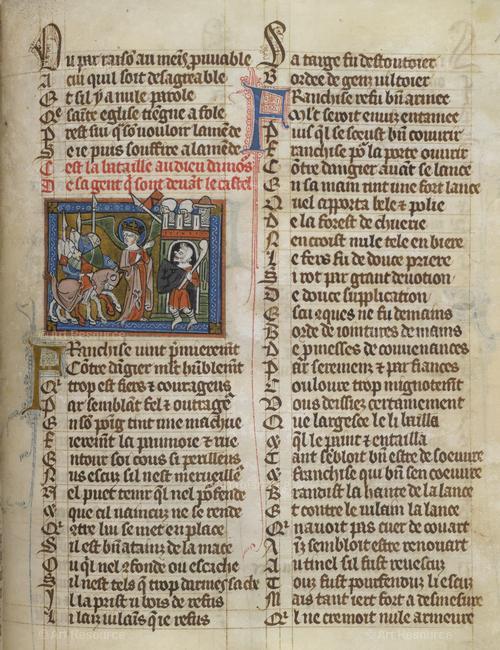 Ou par raisō au meīs prouvable
A cui quil soit desagreable
E t sil y a nule parole
Qe saīte eglise tiēgne a fole
P rest sui qˢ son vouloir lamēde
S e ie puis souffire a lamēde
C est la bataille au dieu damoˢ
D e sa gent q̄ sont devāt le castel
FRanchise vint p̄mieremt
Cōtre dāgier mlt hūblemt
Qˢ trop est fiers & courageus
P ar semblāt fel & outrageˢ
E n sō poīg tint une machue
F ierement la paumoie & rue
E ntour soi cous si perilleus
N us escuz sil nest merveilleˢ
N el puet tenir ql nel pōfende
& que cil vaincuz ne se rende
Qˢ ctre lui se met en place
S il est bn̄ atainz de la mace
O u ql nel cfonde ou escache
S il nest tels q̄ trop darmes sache
I l la prist u bois de refus
L i laiz vilaīs que refus
Sa targe fu destoutoier
B ordee de genz viltoier
FRanchise refu bn̄ armee
Mlt seroit envuiz entamee
P uis ql se sceust bn̄ couvrir
F ranchise pō la porte ouvrir
C ōtre dangier avāt se lance
E n sa main tint une fort lance
Q uel apporta bele & polie
D e la forest de chuerie
N en croist nule tele en biere
L i fers fu de douce priere
S i rot par grant devotion
D e douce supplication
E scu ques ne fu de mains
B orde de iointures de mains
D e pmesses de couvenances
P ar seremēz & par fiances
C oulouré trop mignotemt
V ous deissiez certainement
Q ue largesce le li bailla
& ql le paint & entailla
T ant sēbloit bn̄ estre de soeuvre
& franchise qui bn̄ sen coeuvre
B randist la hante de la lance
E t contre le vilain la lance
Qˢ navoit pas cuer de couart
A īz sembloit estre renouart
A u tinel sil fust revescuz
T ouz fust pourfenduz li escuz
M ais tant iert fort a desmesure
Qˢ l ne cremoit nule armeure
© Art Resource
© Art Resource